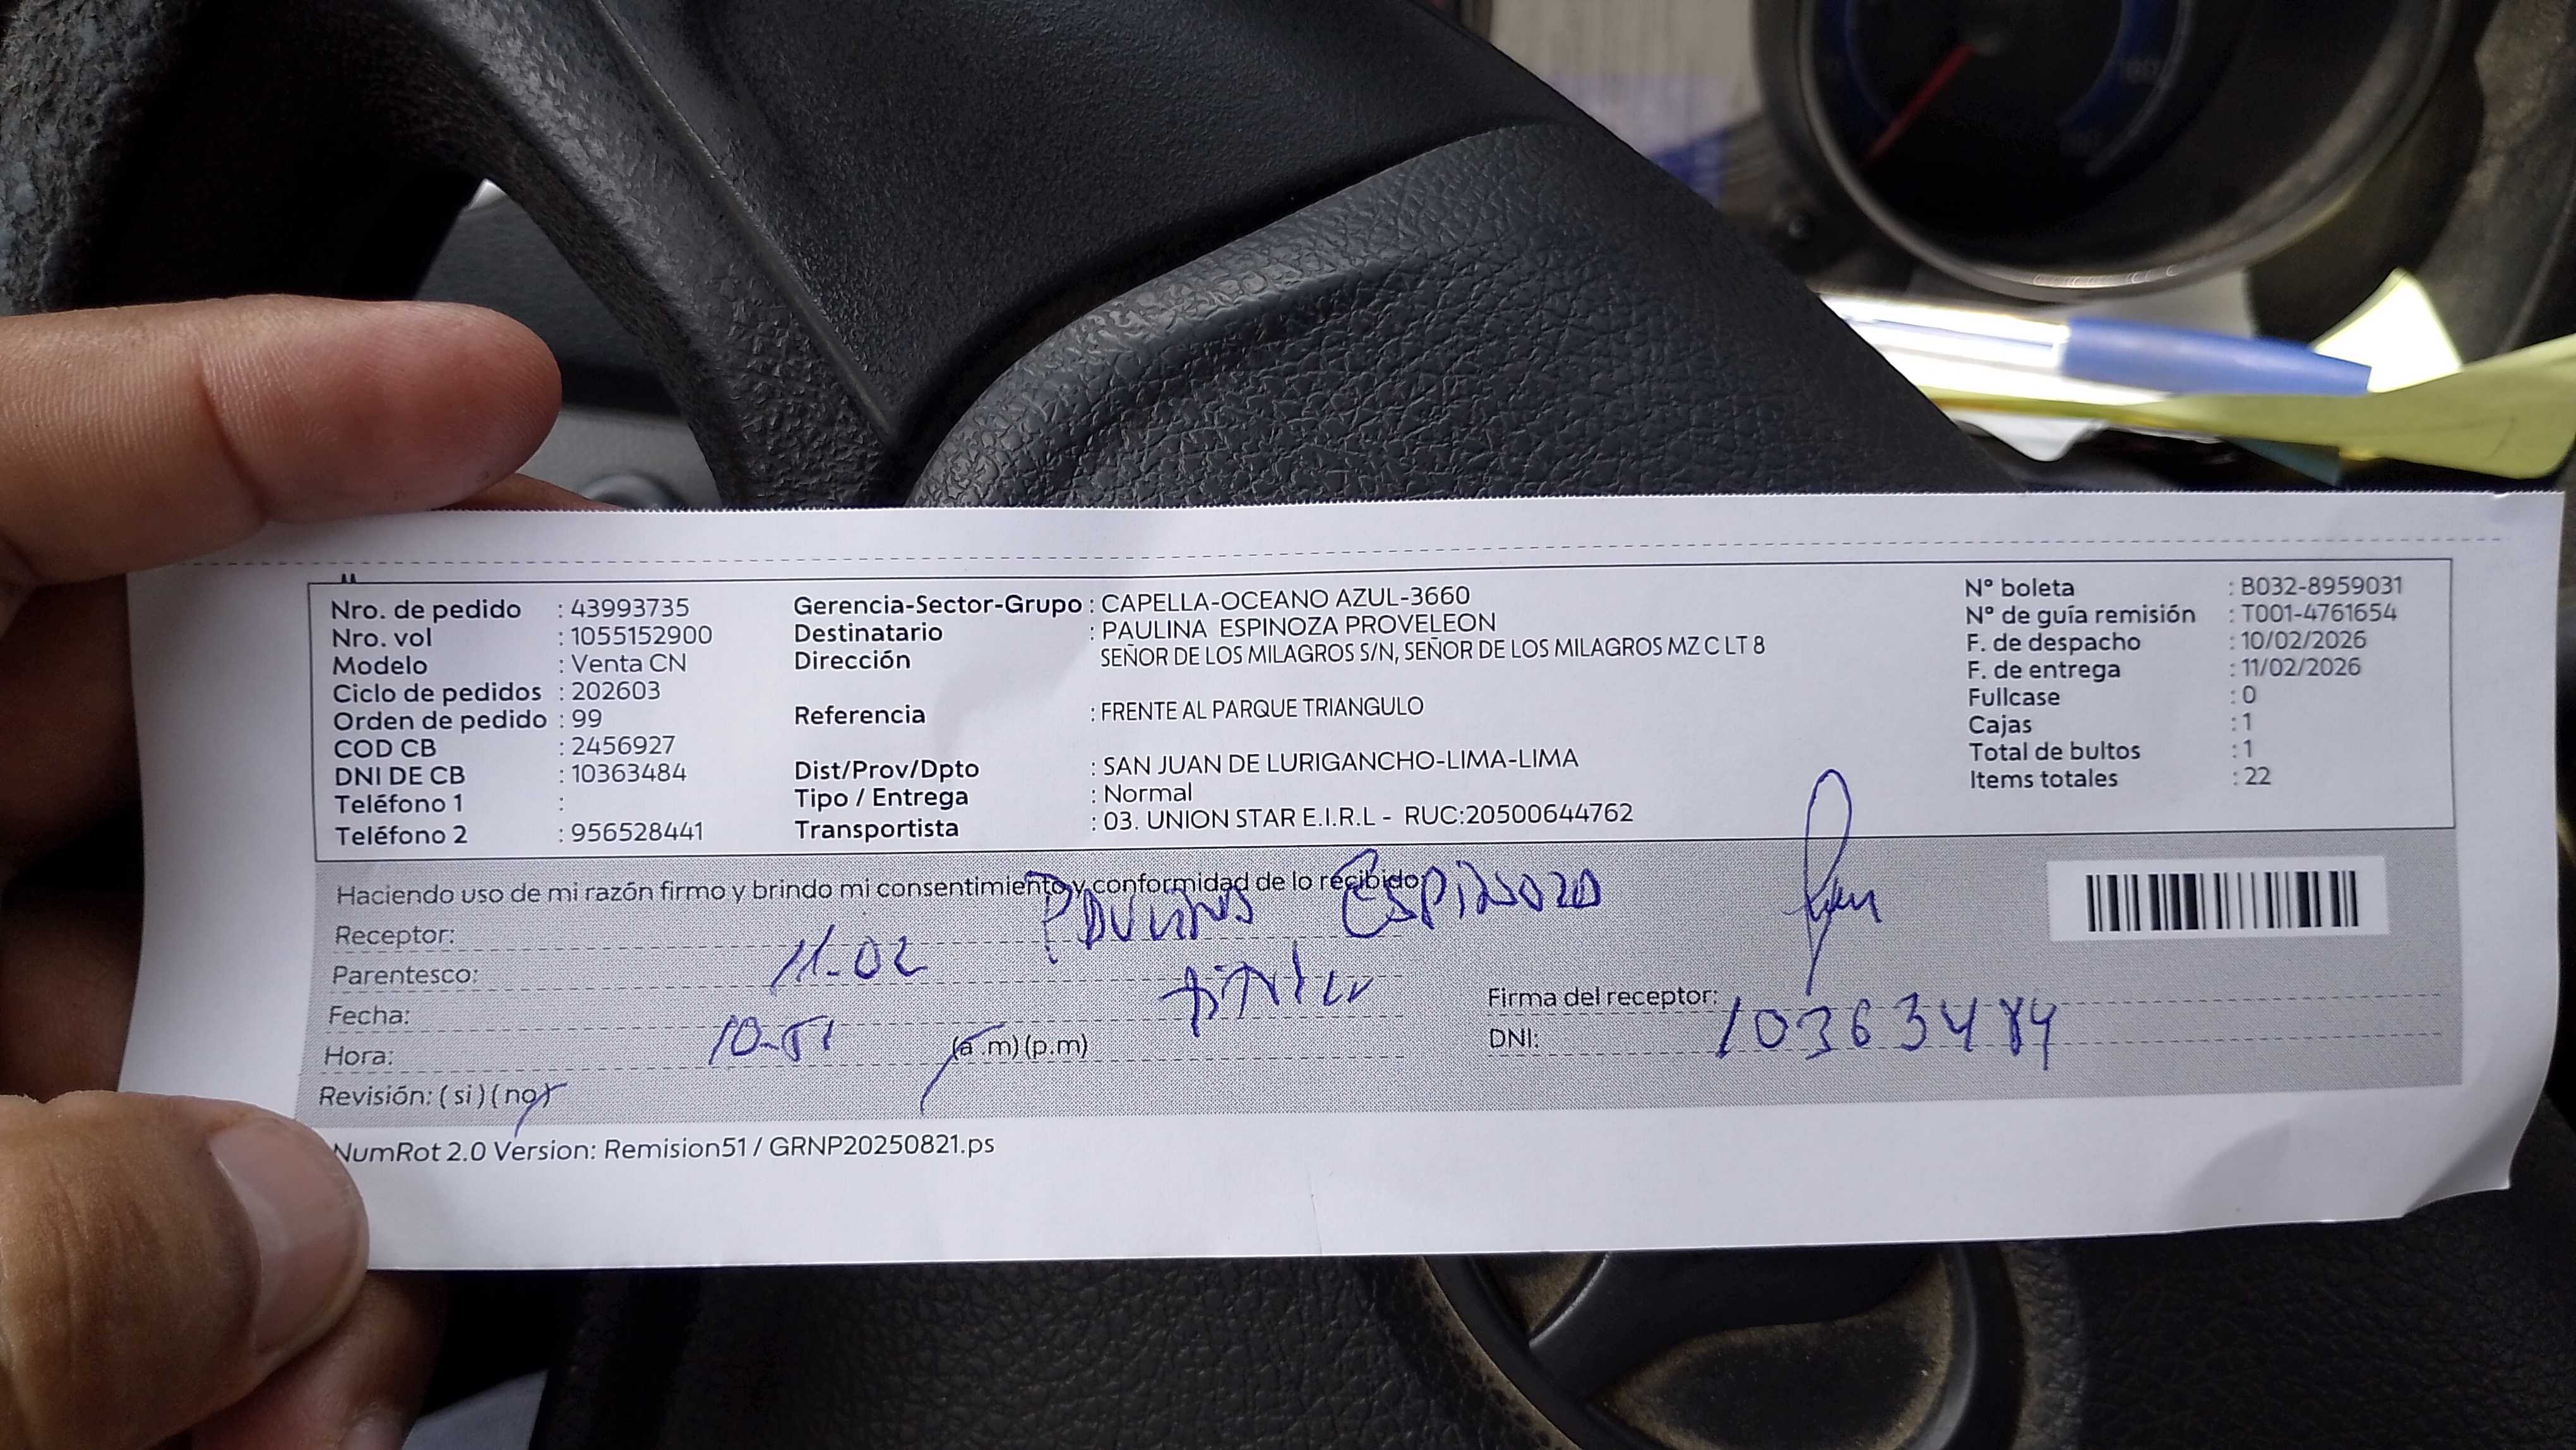 Nro. de pedido : 43993735
Nro. vol : 1055152900
Modelo : Venta CN
Ciclo de pedidos : 202603
Orden de pedido : 99
COD CB : 2456927
DNI DE CB : 10363484
Teléfono 1 :
Teléfono 2 : 956528441
Gerencia-Sector-Grupo : CAPELLA-OCEANO AZUL-3660
Destinatario : PAULINA ESPINOZA PROVELEON
Dirección SEÑOR DE LOS MILAGROS S/N, SEÑOR DE LOS MILAGROS MZ C LT 8
Referencia : FRENTE AL PARQUE TRIANGULO
Dist/Prov/Dpto : SAN JUAN DE LURIGANCHO-LIMA-LIMA
Tipo / Entrega : Normal
Transportista : 03. UNION STAR E.I.R.L - RUC:20500644762
N° boleta : B032-8959031
N° de guía remisión : T001-4761654
F. de despacho : 10/02/2026
F. de entrega : 11/02/2026
Fullcase : 0
Cajas : 1
Total de bultos : 1
Items totales : 22
Haciendo uso de mi razón firmo y brindo mi consentimiento y conformidad de lo recibido
Receptor: Paulina Espinoza
Parentesco:
Fecha: 11-02
Hora: 10-51 (a.m) (p.m)
Revisión: ( si ) ( no )
Firma del receptor:
DNI: 10363484
NumRot 2.0 Version: Remision51 / GRNP20250821.ps